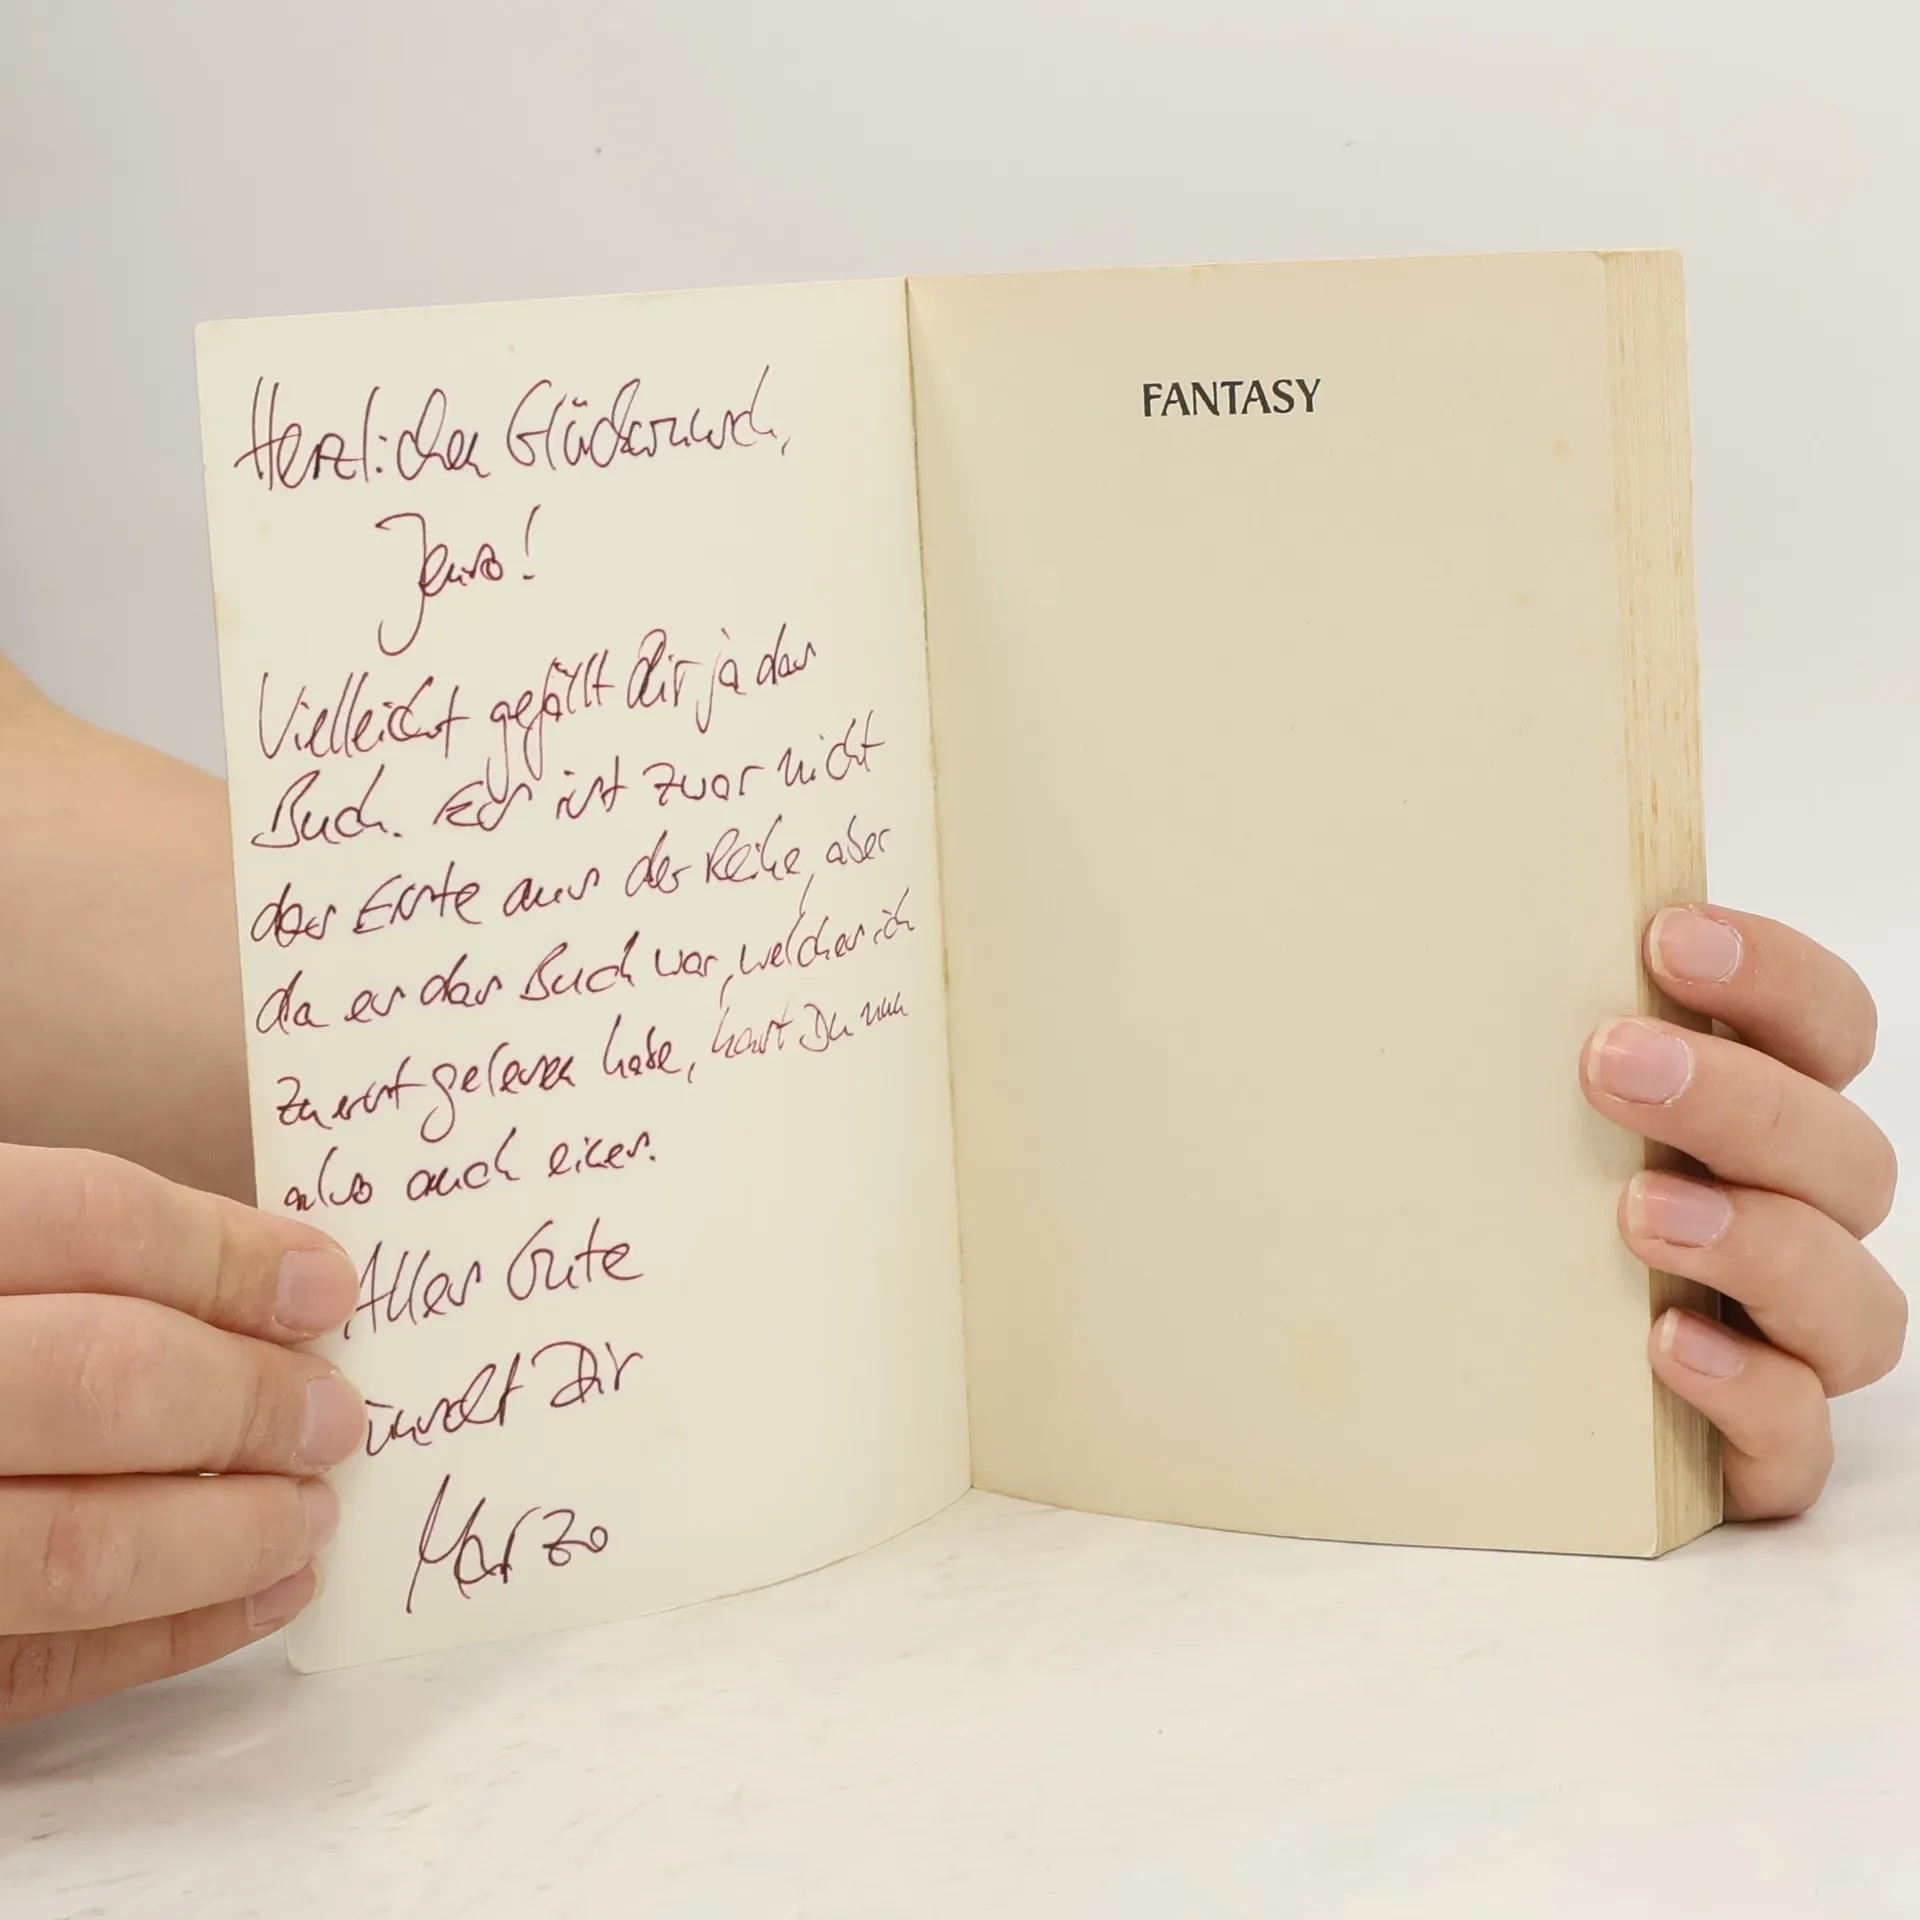 Herzlichen Glückwunsch,
Jens!
Vielleicht gefällt Dir ja das
Buch. Es ist zwar nicht
das Erste aus der Reihe, aber
da es das Buch war, welches ich
zuerst gelesen habe, hast Du nun
also auch eines.
Alles Gute
ünscht Dir
FANTASY